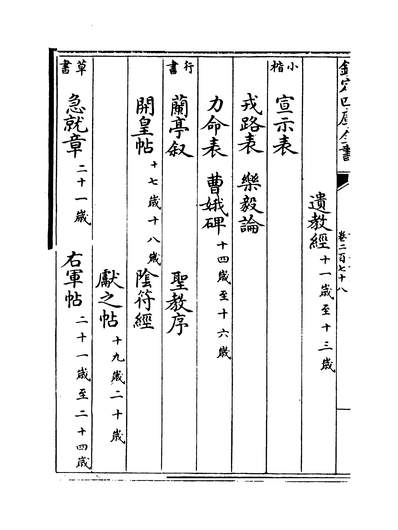 欽定四庫全書 卷二百七十八
遺教經 十一歲至十三歲
小楷 宣示表
戎路表 樂毅論
力命表 曹娥碑 十四歲至十六歲
行書 蘭亭叙 聖教序
開皇帖 十七歲十八歲 陰符經
獻之帖 十九歲二十歲
草書 急就章 二十一歲 右軍帖 二十一歲至二十四歲